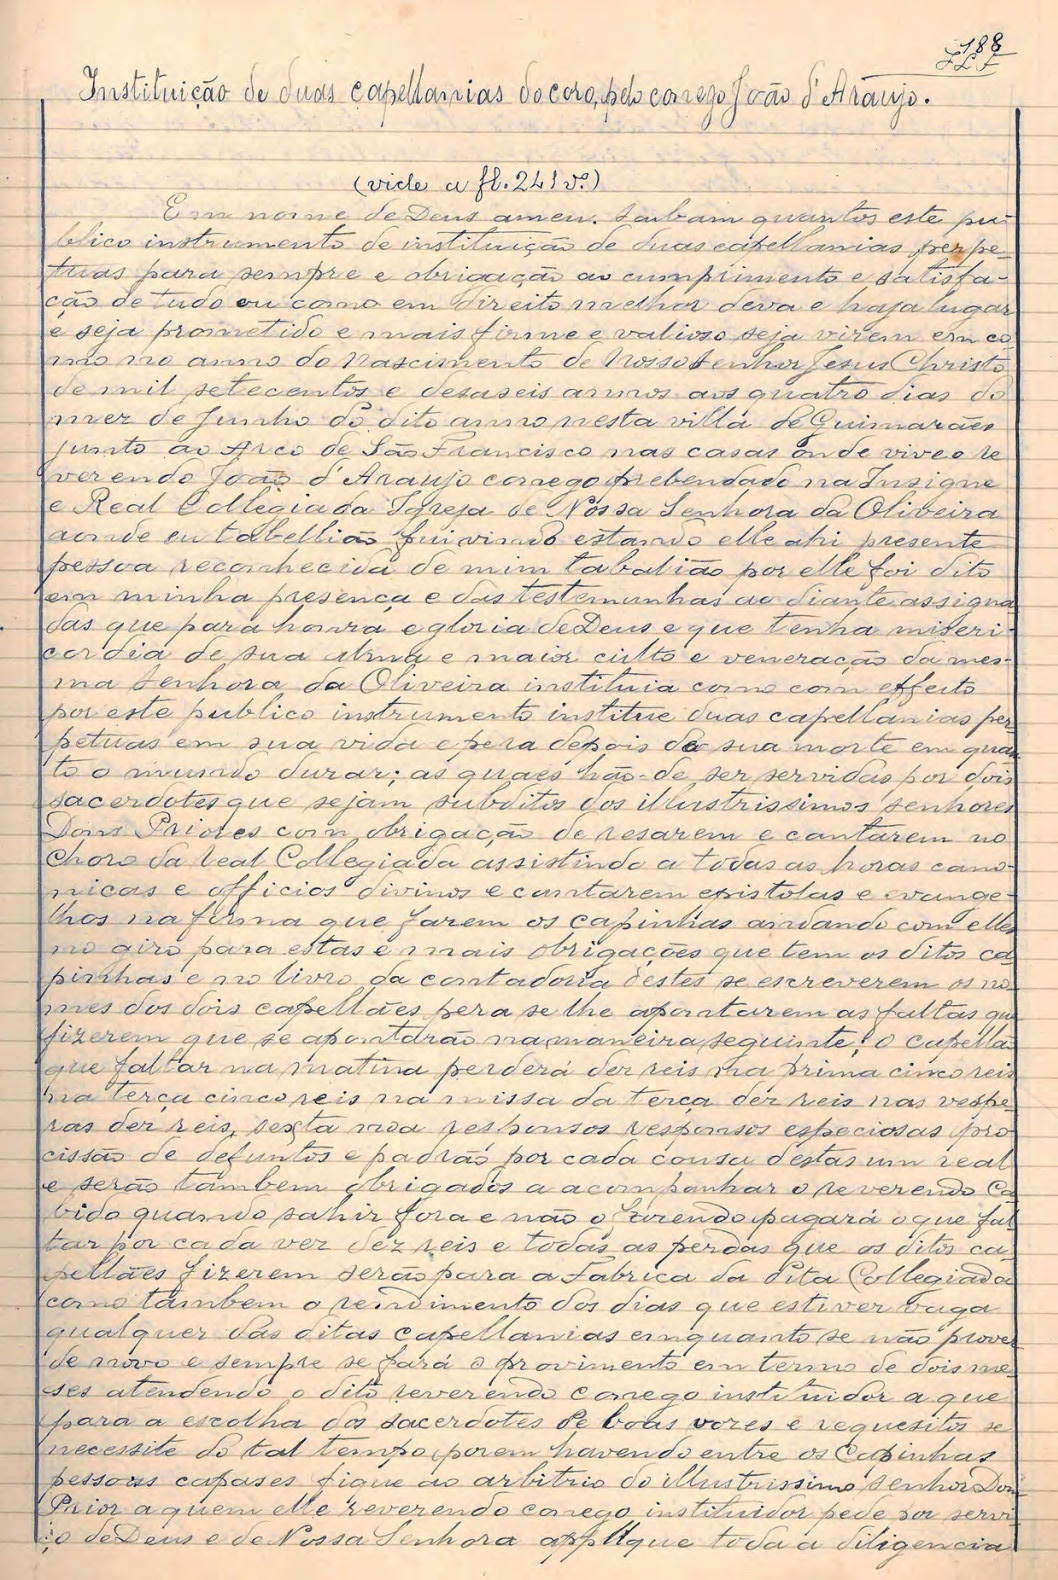 188
Instituição de duas capellanias do coro, pelo conego João d'Araujo.
(vide a fl. 241 vº)
Em nome de Deus amen. Saibam quantos este pu-
blico instrumento de instituição de duas capellanias perpe-
tuas para sempre e obrigação ao cumprimento e satisfa-
ção de tudo ou como em direito melhor deva e haja lugar
e seja prometido e mais firme e valioso seja virem em co
mo no anno do Nascimento de Nosso Senhor Jesus Christo
de mil setecentos e desaseis annos aos quatro dias do
mez de Junho do dito anno nesta villa de Guimarães
junto ao Arco de São Francisco nas casas onde vive o re
verendo João d'Araujo conego prebendado na Insigne
e Real Collegiada Igreja de Nossa Senhora da Oliveira
aonde eu tabellião fui vindo estando elle ahi presente
pessoa reconhecida de mim tabalião por elle foi dito
em minha presença e das testemunhas ao diante assigna
das que para honra e gloria de Deus e que tenha miseri-
cordia de sua alma e maior culto e veneração da mes-
ma Senhora da Oliveira instituia como com effeito
por este publico instrumento institue duas capellanias per
petuas em sua vida e pera depois da sua morte em quan
to o mundo durar; as quaes hão-de ser servidas por dois
sacerdotes que sejam subditos dos illustrissimos senhores
Dons Priores com obrigação de resarem e cantarem no
Choro da real Collegiada assistindo a todas as horas cano-
nicas e officios divinos e cantarem epistolas e evange-
lhos na forma que fazem os capinhas andando com elles
no giro para estas e mais obrigações que tem os ditos ca
pinhas e no livro da contadoria destes se escreverem os no
mes dos dois capellães pera se lhe apontarem as faltas que
fizerem que se apontarão na maneira seguinte; O capellão
que faltar na matina perderá dez reis na prima cinco reis
na terça cinco reis na missa da terça dez reis nas vespe
ras dez reis, sexta noa responsos responsos especiosas pro
cissão de defuntos e padrão por cada cousa destas um real
e serão tambem obrigados a acompanhar o reverendo Ca
bido quando sahir fora e não o fazendo pagará o que fal
tar por cada vez dez reis e todas as perdas que os ditos ca
pellães fizerem serão para a Fabrica da dita Collegiada
como tambem o rendimento dos dias que estiver vaga
qualquer das ditas capellanias emquanto se não prover
de novo e sempre se fará o provimento em termo de dois me
ses atendendo o dito reverendo conego instituidor a que
para a escolha dos sacerdotes de boas vozes e requesitos se
necessite do tal tempo porem havendo entre os Capinhas
pessoas capases fique ao arbitrio do illustrissimo senhor Dom
Prior a quem elle reverendo conego instituidor pede por servi
ço de Deus e de Nossa Senhora applique toda a diligencia